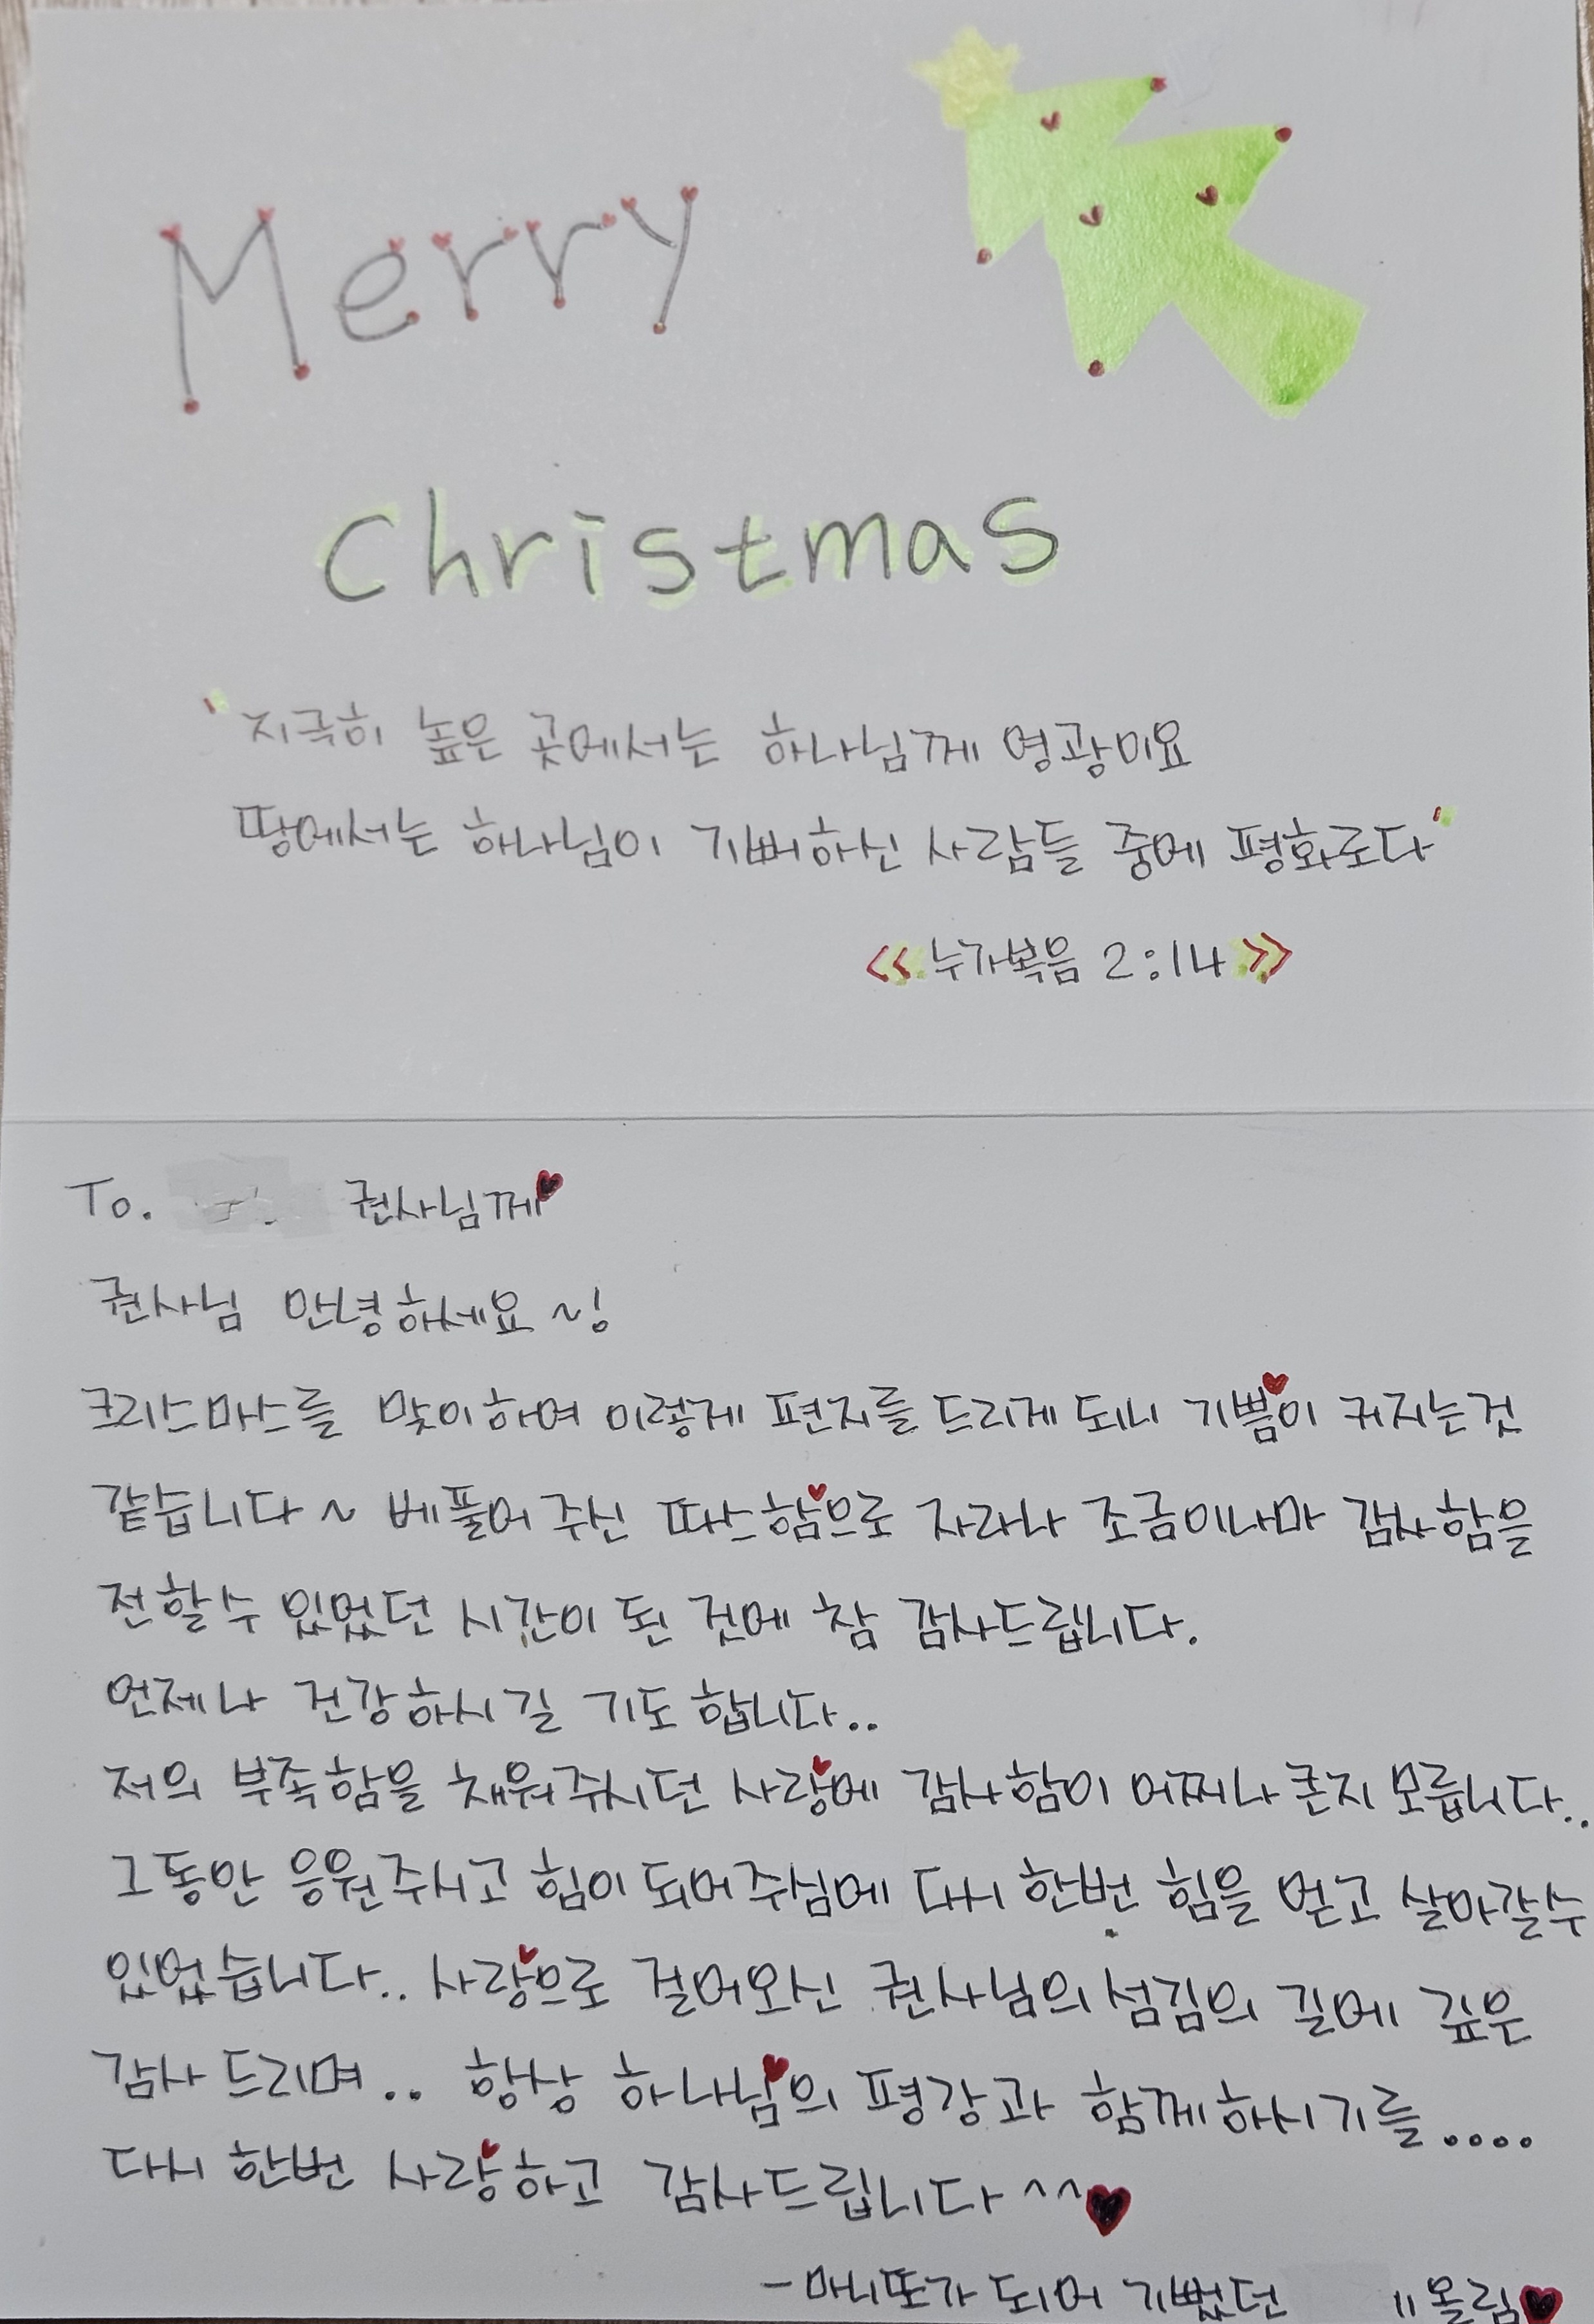 Merry
Christmas
"지극히 높은 곳에서는 하나님께 영광이요
땅에서는 하나님이 기뻐하신 사람들 중에 평화로다"
《누가복음 2:14》
To. 권사님께♥
권사님 안녕하세요~!
크리스마스를 맞이하여 이렇게 편지를 드리게 되니 기쁨이 커지는것
같습니다~ 베풀어 주신 따스함으로 자라나 조금이나마 감사함을
전할수 있었던 시간이 된 것에 참 감사드립니다.
언제나 건강하시길 기도 합니다..
저의 부족함을 채워주시던 사랑에 감사함이 어찌나 큰지 모릅니다..
그동안 응원주시고 힘이 되어주심에 다시 한번 힘을 얻고 살아갈수
있었습니다.. 사랑으로 걸어오신 권사님의 섬김의 길에 깊은
감사 드리며.. 항상 하나님의 평강과 함께하시기를....
다시 한번 사랑하고 감사드립니다^^♥
-마니또가 되어 기뻤던 올림♥